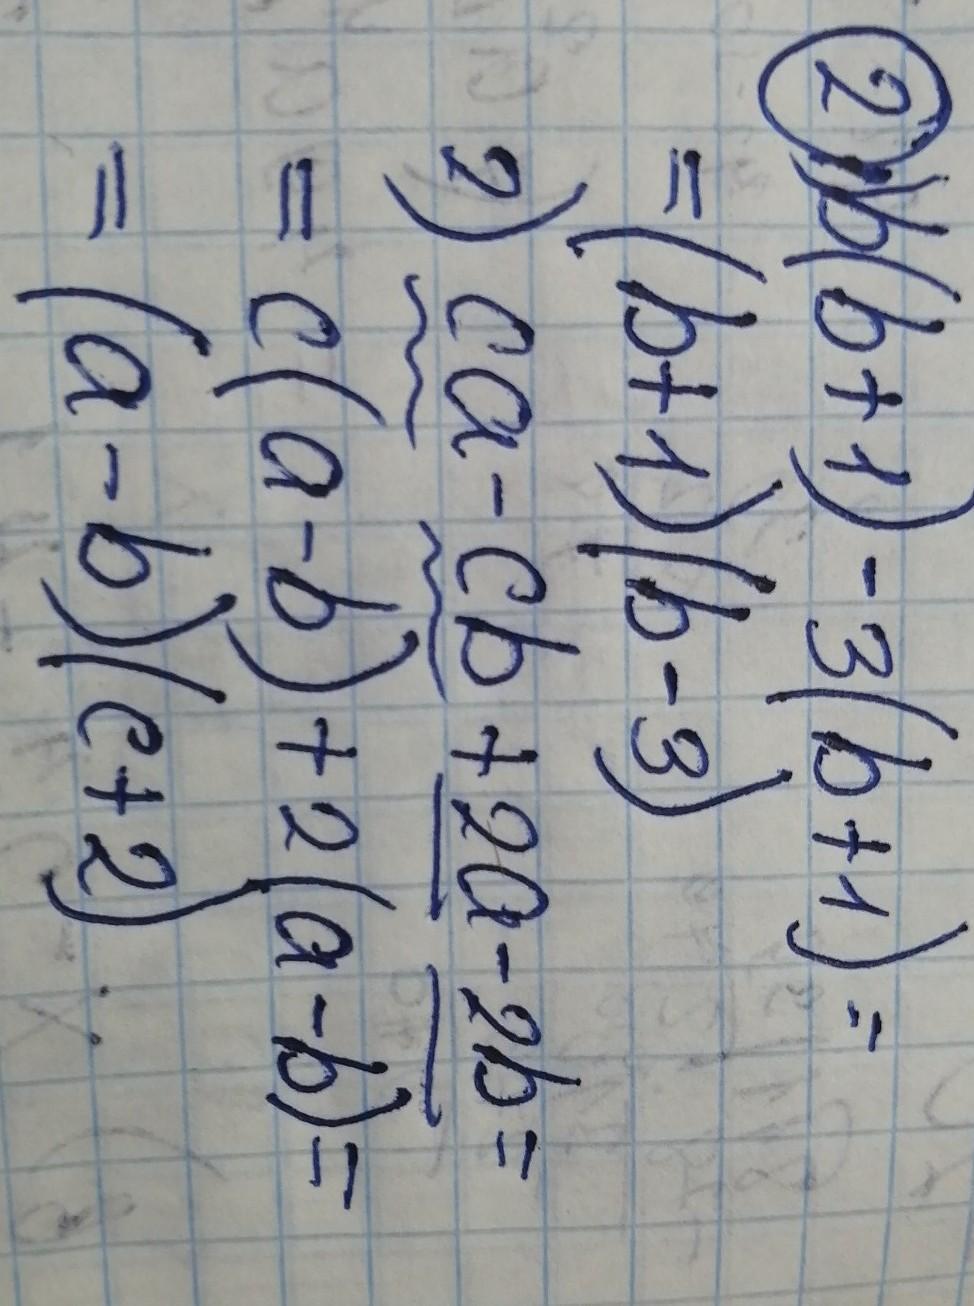 ② 1) b(b+1)-3(b+1)=
=(b+1)(b-3)
2) ca-cb+2a-2b=
=c(a-b)+2(a-b)=
=(a-b)(c+2).